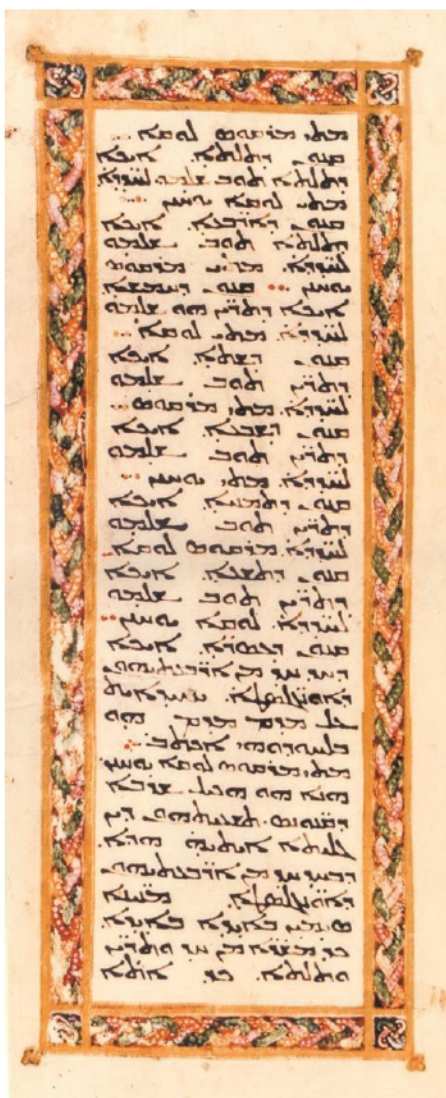 ܡܬܝ܂ ܡܪܩܘܣ ܠܘܩܐ
ܩܢܘܢ ܕܬܠܬܐ. ܐܝܟܐ
ܕܬܠܬܐ ܬܘܒ ܫܠܡܘ ܠܚܕܕܐ
ܡܬܝ ܠܘܩܐ ܝܘܚܢܢ
ܩܢܘܢ ܕܐܪܒܥܐ. ܐܝܟܐ
ܕܬܠܬܐ ܬܘܒ ܫܠܡܘ
ܠܚܕܕܐ. ܡܬܝ ܡܪܩܘܣ
ܝܘܚܢܢ ܩܢܘܢ ܕܚܡܫܐ
ܐܝܟܐ ܕܬܪ̈ܝܢ ܗܘ ܫܠܡܘ
ܠܚܕܕܐ. ܡܬܝ ܠܘܩܐ
ܩܢܘܢ ܕܫܬܐ. ܐܝܟܐ
ܕܬܪ̈ܝܢ ܬܘܒ ܫܠܡܘ
ܠܚܕܕܐ. ܡܬܝ ܡܪܩܘܣ
ܩܢܘܢ ܕܫܒܥܐ. ܐܝܟܐ
ܕܬܪ̈ܝܢ ܬܘܒ ܫܠܡܘ
ܠܚܕܕܐ. ܡܬܝ ܝܘܚܢܢ
ܩܢܘܢ ܕܬܡܢܝܐ. ܐܝܟܐ
ܕܬܪ̈ܝܢ ܬܘܒ ܫܠܡܘ
ܠܚܕܕܐ. ܡܪܩܘܣ ܠܘܩܐ
ܩܢܘܢ ܕܬܫܥܐ. ܐܝܟܐ
ܕܬܪ̈ܝܢ ܬܘܒ ܫܠܡܘ
ܠܚܕܕܐ. ܠܘܩܐ ܝܘܚܢܢ
ܩܢܘܢ ܕܥܣܪܐ. ܐܝܟܐ
ܕܚܕ ܚܕ ܡܢ ܐܪ̈ܒܥܬܝܗܘܢ
ܝܚܝܕܐܝܬ
ܥܠ ܡܕܡ ܡܕܡ ܗܘ
ܒܠܚܘܕܘܗܝ ܐܟܬܒ
ܡܬܝ܂ ܡܪܩܘܣ ܠܘܩܐ ܝܘܚܢܢ
ܗܢܐ ܗܘ ܗܟܝܠ ܫܪܒܐ
ܕܝܢ
ܗܕܐ
ܕܒܚܕ ܚܕ ܡܢ ܐܪ̈ܒܥܬܝܗܘܢ
ܒܐܝܕܐ ܒܐܝܕܐ
ܟܕ ܡܫܪܐ ܡܢ ܚܕ ܘܬܪ̈ܝܢ
ܘܬܠܬܐ. ܟܕ ܐܙܠܐ